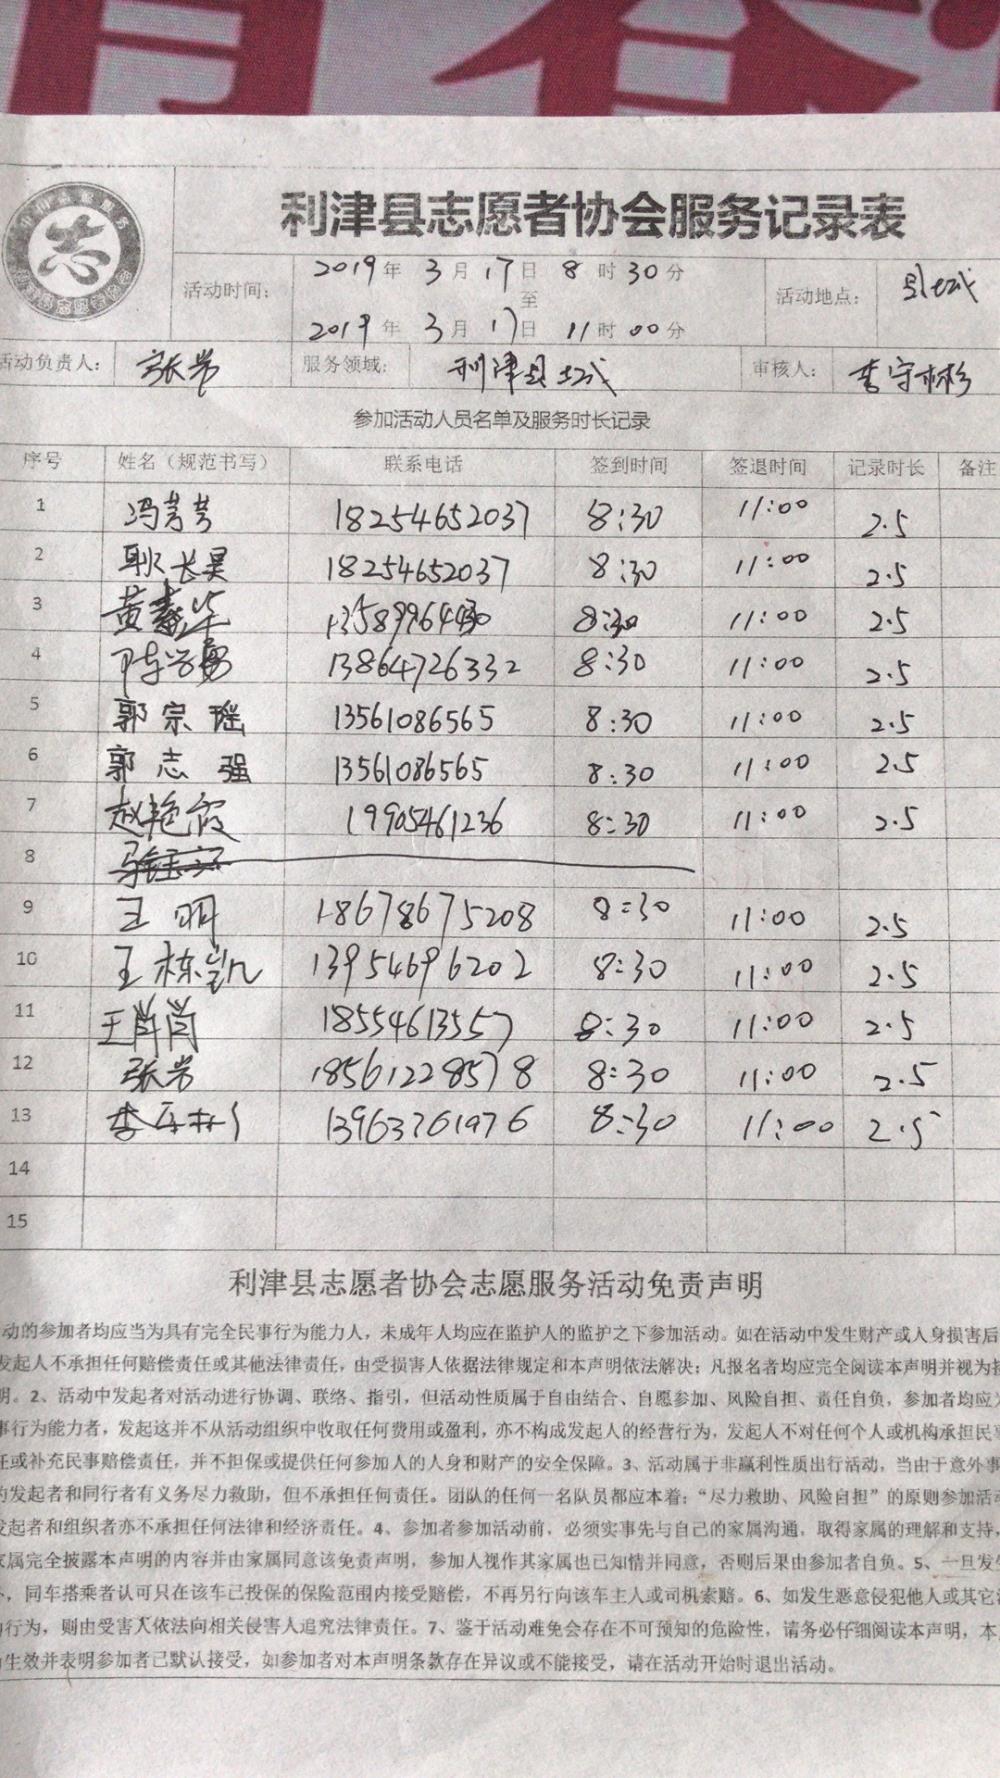 利津县志愿者协会服务记录表
活动时间： 2019年 3月17日 8时30分
至
2019年 3月17日 11时00分
活动地点：
活动负责人： 张岩 服务领域： 利津县 审核人：
参加活动人员名单及服务时长记录
序号 姓名（规范书写） 联系电话 签到时间 签退时间 记录时长 备注
1 冯芳芳 18254652037 8:30 11:00 2.5
2 耿长昊 18254652037 8:30 11:00 2.5
3 黄 华 8:30 11:00 2.5
4 陈学勇 13864726332 8:30 11:00 2.5
5 郭宗瑶 13561086565 8:30 11:00 2.5
6 郭志强 13561086565 8:30 11:00 2.5
7 赵艳霞 19905461236 8:30 11:00 2.5
8
9 王明 18678675208 8:30 11:00 2.5
10 王栋凯 13954696202 8:30 11:00 2.5
11 王肖肖 18554613557 8:30 11:00 2.5
12 张岩 18561228578 8:30 11:00 2.5
13 13963761976 8:30 11:00 2.5
14
15
利津县志愿者协会志愿服务活动免责声明
动的参加者均应当为具有完全民事行为能力人，未成年人均应在监护人的监护之下参加活动。如在活动中发生财产或人身损害后
发起人不承担任何赔偿责任或其他法律责任，由受损害人依据法律规定和本声明依法解决；凡报名者均应完全阅读本声明并视为接
明。2、活动中发起者对活动进行协调、联络、指引，但活动性质属于自由结合、自愿参加、风险自担、责任自负，参加者均应为
事行为能力者，发起这并不从活动组织中收取任何费用或盈利，亦不构成发起人的经营行为，发起人不对任何个人或机构承担民事
任或补充民事赔偿责任，并不担保或提供任何参加人的人身和财产的安全保障。3、活动属于非赢利性质出行活动，当由于意外事
的发起者和同行者有义务尽力救助，但不承担任何责任。团队的任何一名队员都应本着：“尽力救助、风险自担”的原则参加活动
发起者和组织者亦不承担任何法律和经济责任。4、参加者参加活动前，必须实事先与自己的家属沟通，取得家属的理解和支持，
家属完全披露本声明的内容并由家属同意该免责声明，参加人视作其家属也已知情并同意，否则后果由参加者自负。5、一旦发生
，同车搭乘者认可只在该车已投保的保险范围内接受赔偿，不再另行向该车主人或司机索赔。6、如发生恶意侵犯他人或其它
行为，则由受害人依法向相关侵害人追究法律责任。7、鉴于活动难免会存在不可预知的危险性，请务必仔细阅读本声明，本
生效并表明参加者已默认接受，如参加者对本声明条款存在异议或不能接受，请在活动开始时退出活动。